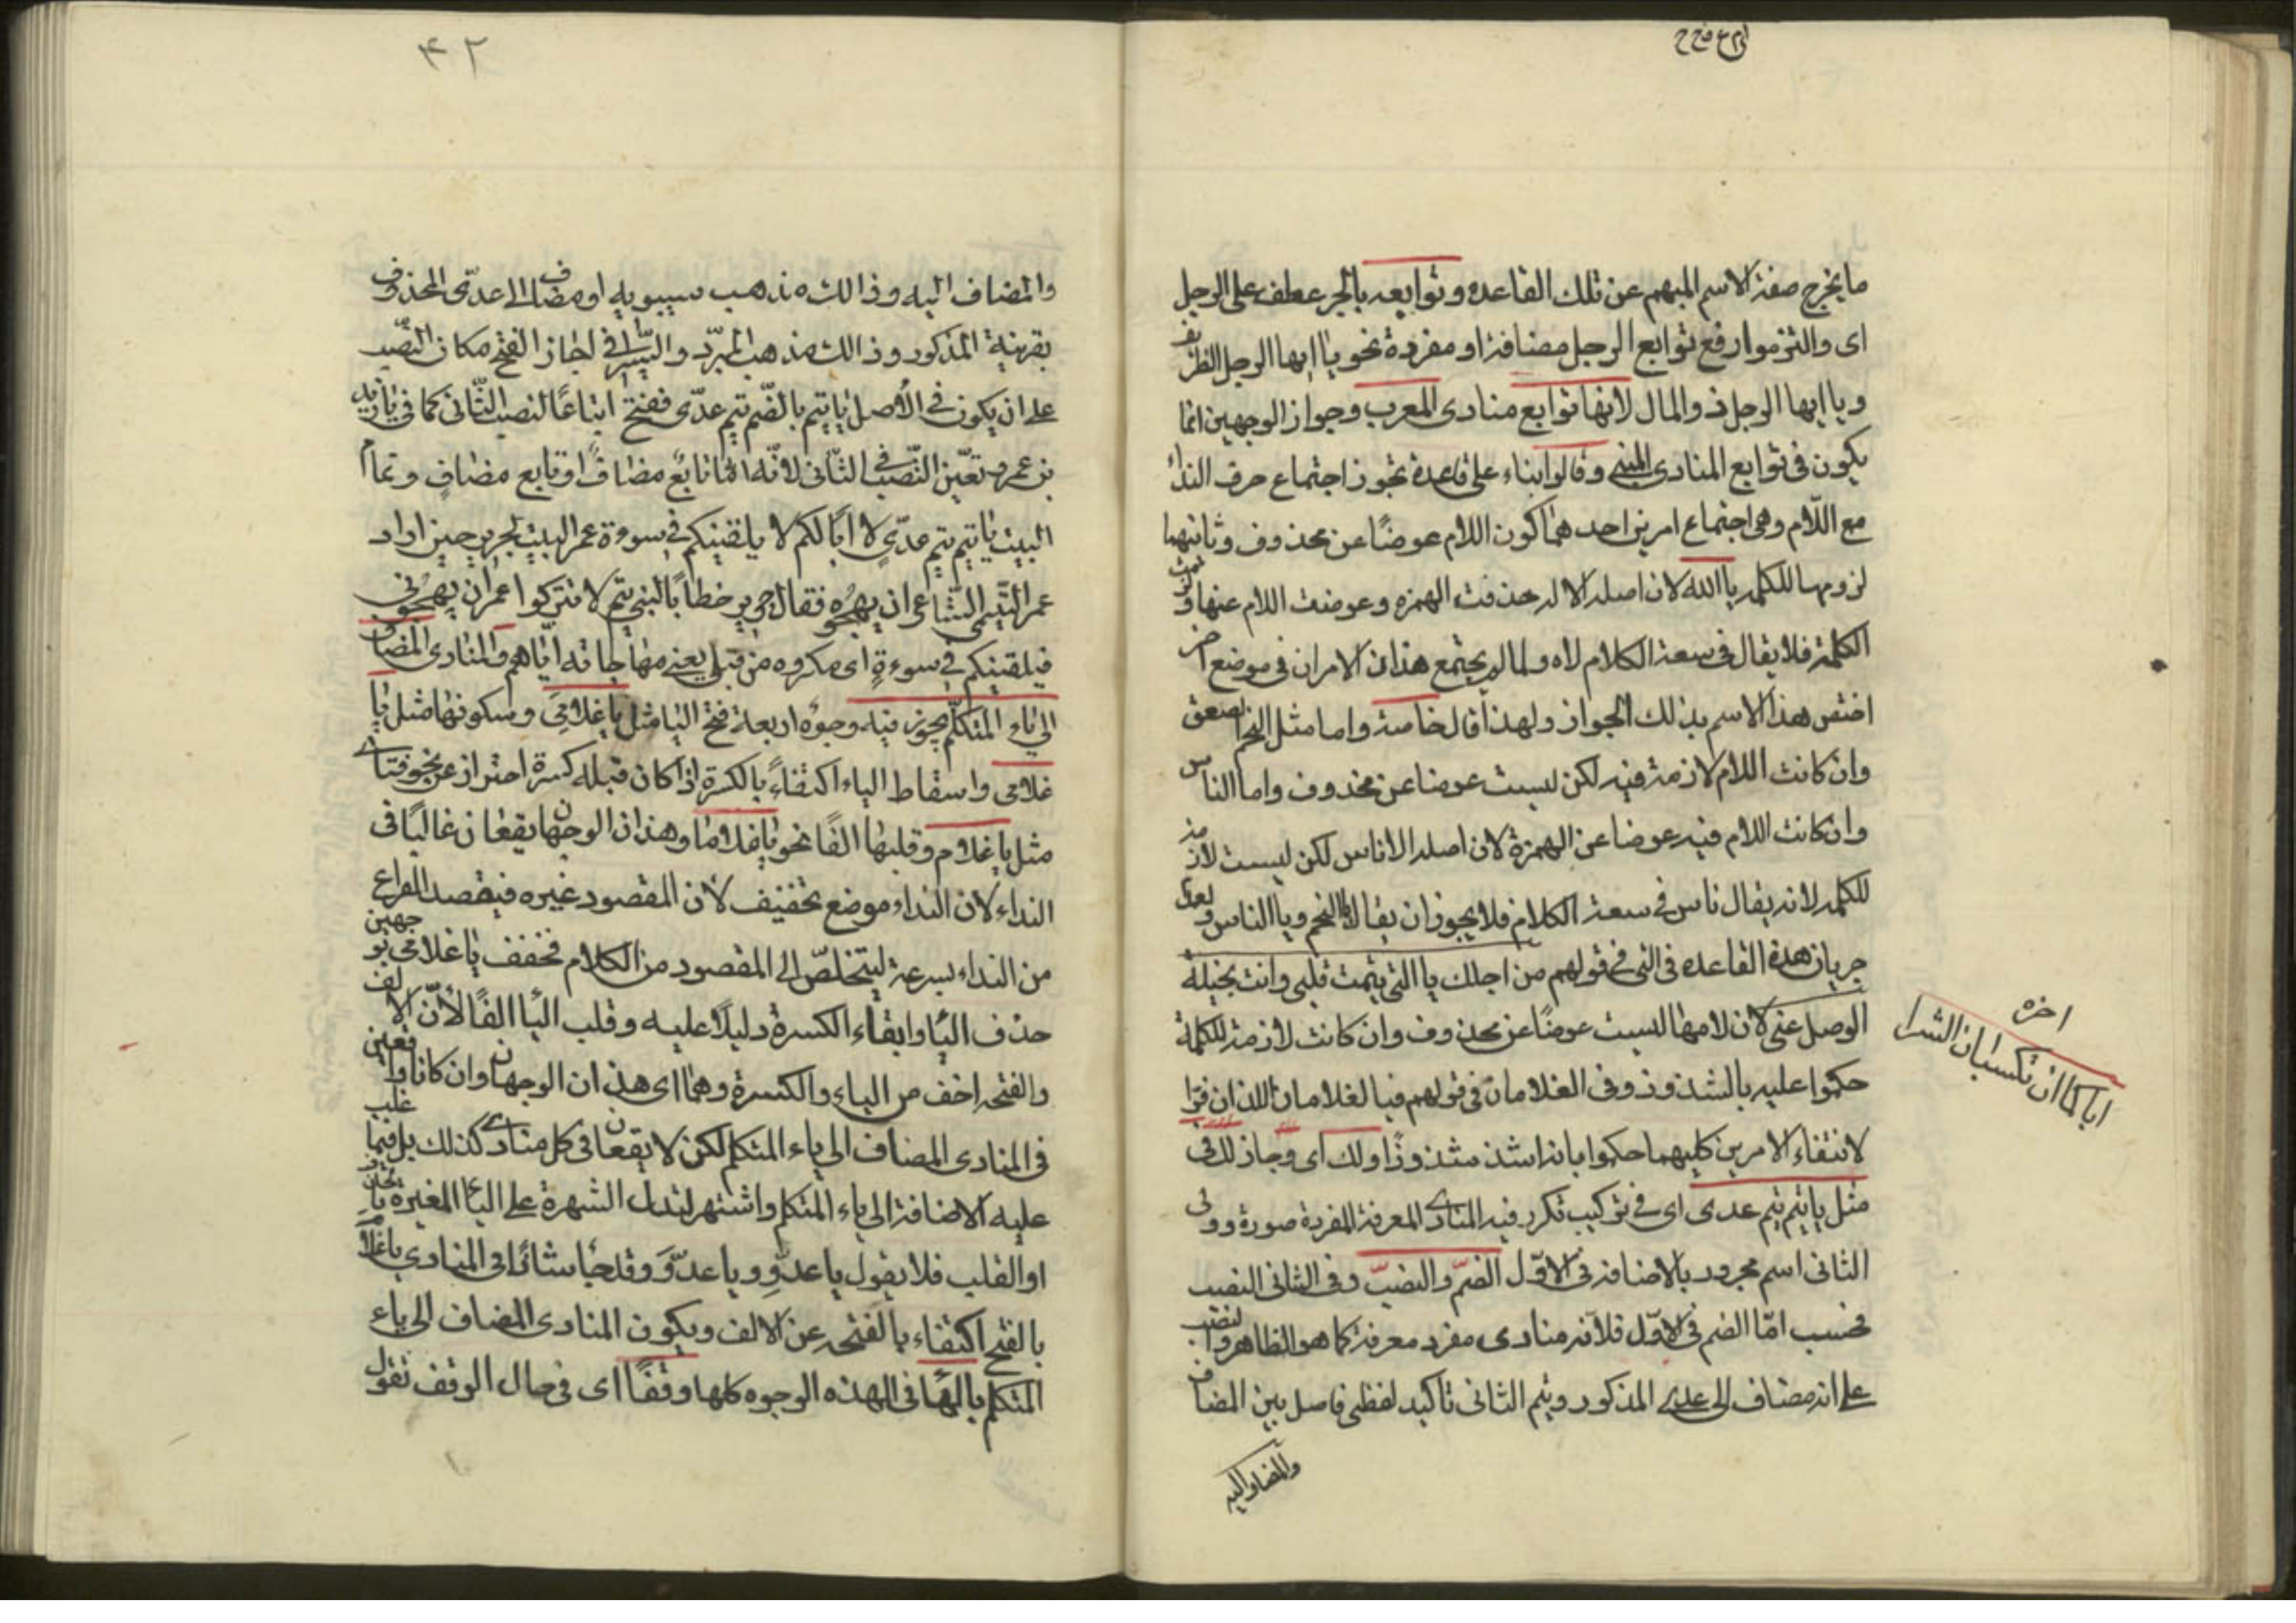 ما يخرج صفة الاسم المبهم عن تلك القاعده وتوابعه بالجر عطف على الرجل
اى والتزموا رفع توابع الرجل مضافة او مفردة نحو يا ايها الرجل الظريف
ويا ايها الرجل ذو المال لانها توابع منادى المعرب وجواز الوجهين انما
يكون فى توابع المنادى المبنى وقالوا بناء على قاعدة تجوز اجتماع حرف النداء
مع اللام وهى اجتماع امرين احدهما كون اللام عوضًا عن محذوف وثانيهما
لزومها للكلمه يا الله لان اصله الاله حذفت الهمزه وعوضت اللام عنها ولزمت
الكلمة فلا يقال فى سعة الكلام لاه ولما لم يجتمع هذان الامران فى موضع اخر
اختص هذا الاسم بذلك الجواز ولهذا قال خاصة واما مثل النجم الصعق
وان كانت اللام لازمة فيه لكن ليست عوضا عن محذوف واما الناس
وان كانت اللام فيه عوضا عن الهمزة لان اصله الاناس لكن ليست لازمة
للكلمه لانه يقال ناس فى سعة الكلام فلا يجوز ان يقال يا النجم ويا الناس ولعدم
جريان هذه القاعده فى التى فى قولهم من اجلك يا التى تيمت قلبى وانت بخيلة
الوصل عنى لان لامها ليست عوضًا عن محذوف وان كانت لازمة للكلمة
حكموا عليه بالشذوذ وفى الغلامان فى قولهم فيا الغلامان اللذان فرّا
لانتفاء الامرين كليهما حكموا بانه اشذ شذوذًا ولك اى وجاز لك فى
مثل يا تيم تيم عدى اى فى تركيب تكرر فيه المنادى المعرفة المفردة صورة وولى
الثانى اسم مجرور بالاضافة فى الاوّل الضمّ والنصبّ وفى الثانى النصب
فحسب امّا الضم فى الاوّل فلانّه منادى مفرد معرفة كما هو الظاهر والنصب
على انه مضاف الى عدى المذكور وتيم الثانى تاكيد لفظى فاصل بين المضاف
والمضاف اليه
اخره
اياكما ان تكسبان الشرا
٤٢
والمضاف اليه وذالك مذهب سيبويه او مضاف الى عدىّ المحذوف
بقرينة المذكور وذالك مذهب المبرّد والسّيرافى اجاز الفتح مكان النّصب
على ان يكون فى الأصل يا تيم بالضّم تيم عدّى ففتح اتباعًا لنصب الثّانى كما فى يا زيد
بن عمرو تعيّن النّصب فى الثّانى لانّه امّا تابع مضاف او تابع مضافٍ وتمام
البيت يا تيم تيم عدّىٍ لا ابًا لكم لا يلقينكم فى سوءة عمر البيت لجرير حين اراد
عمر التّيمى الشّاعر ان يهجوه فقال جرير خطابًا لبنى تيم لا تتركوا عمر ان يهجونى
فيلقينكم فى سوءةٍ اى مكروه من قبلى يعنى مهاجاته ايّاهم والمنادى المضاف
الى ياء المتكلّم يجوز فيه وجوه اربعة فتح اليا مثل يا غلامىَ وسكونها مثل يا
غلامى واسقاط الياء اكتفاءً بالكسرة اذا كان قبله كسرة احتراز عن نحو فتاى
مثل يا غلام وقلبها الفًا نحو يا غلاما وهذان الوجهان يقعان غالبًا فى
النداء لان النداء موضع تخفيف لان المقصود غيره فيقصد الفراغ
من النداء بسرعة ليتخلصّ الى المقصود من الكلام فخفف يا غلامى بوجهين
حذف اليا وابقاء الكسرة دليلًا عليه وقلب اليا الفًا لأنّ الالف
والفتحه اخف من الياء والكسرة وهما اى هذان الوجهان وان كانا واقعين
فى المنادى المضاف الى ياء المتكلم لكن لا يقعان فى كل منادى كذلك بل فيما غلب
عليه الاضافة الى ياء المتكلم واشتهر لتدل الشهرة على اليا المغيرة بالحذف
او القلب فلا يقول يا عدوِّ ويا عدوَّ وقد جا شاذا فى المنادى يا غلام
بالفتح اكتفاء بالفتحه عن الالف ويكون المنادى المضاف الى ياء
المتكلم بالها فى الهذه الوجوه كلها وقفًا اى فى حال الوقف تقول